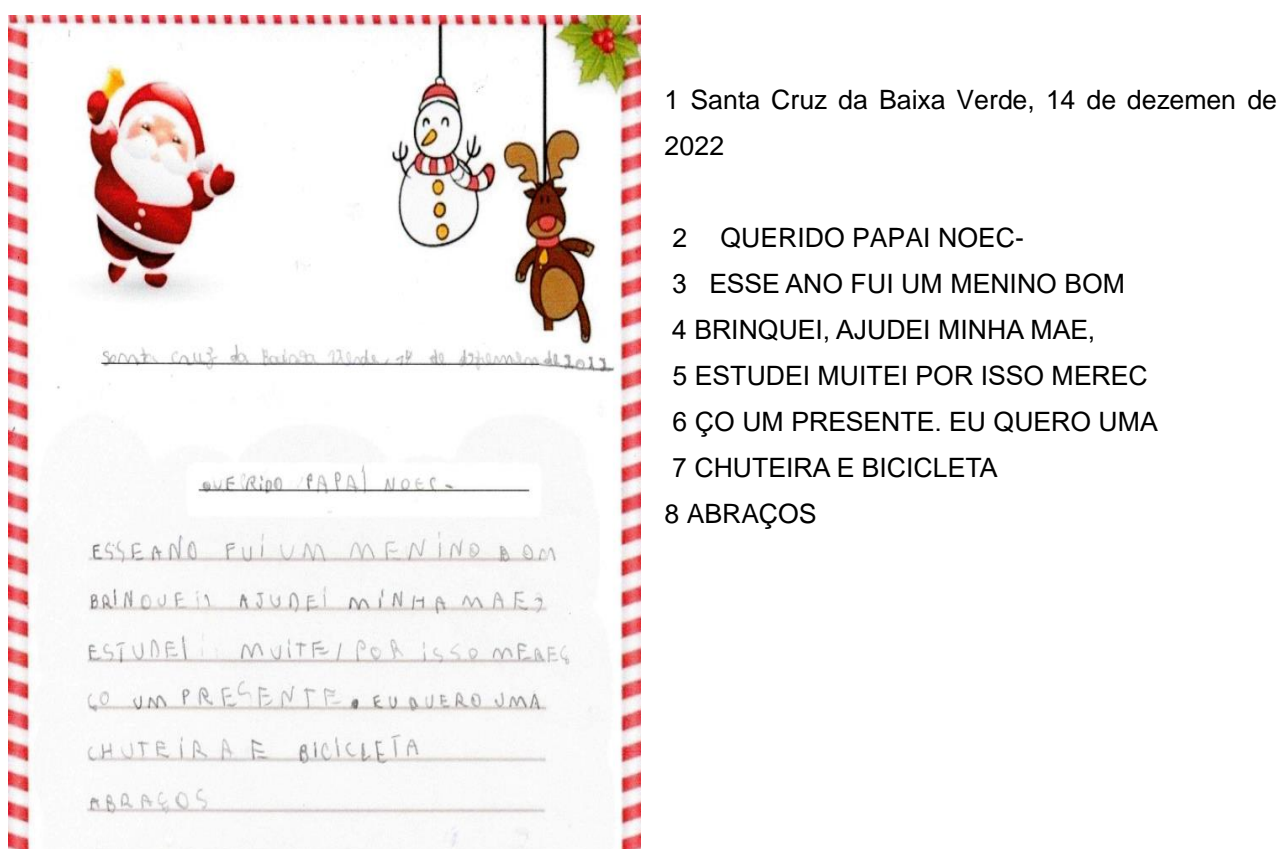 Santa Cruz da Baixa Verde, 14 de dezemen de 2022
QUERIDO PAPAI NOEC-
ESSE ANO FUI UM MENINO BOM
BRINQUEI, AJUDEI MINHA MAE,
ESTUDEI MUITEI POR ISSO MEREÇ
ÇO UM PRESENTE. EU QUERO UMA
CHUTEIRA E BICICLETA
ABRAÇOS
1 Santa Cruz da Baixa Verde, 14 de dezemen de
2022
2 QUERIDO PAPAI NOEC-
3 ESSE ANO FUI UM MENINO BOM
4 BRINQUEI, AJUDEI MINHA MAE,
5 ESTUDEI MUITEI POR ISSO MEREC
6 ÇO UM PRESENTE. EU QUERO UMA
7 CHUTEIRA E BICICLETA
8 ABRAÇOS